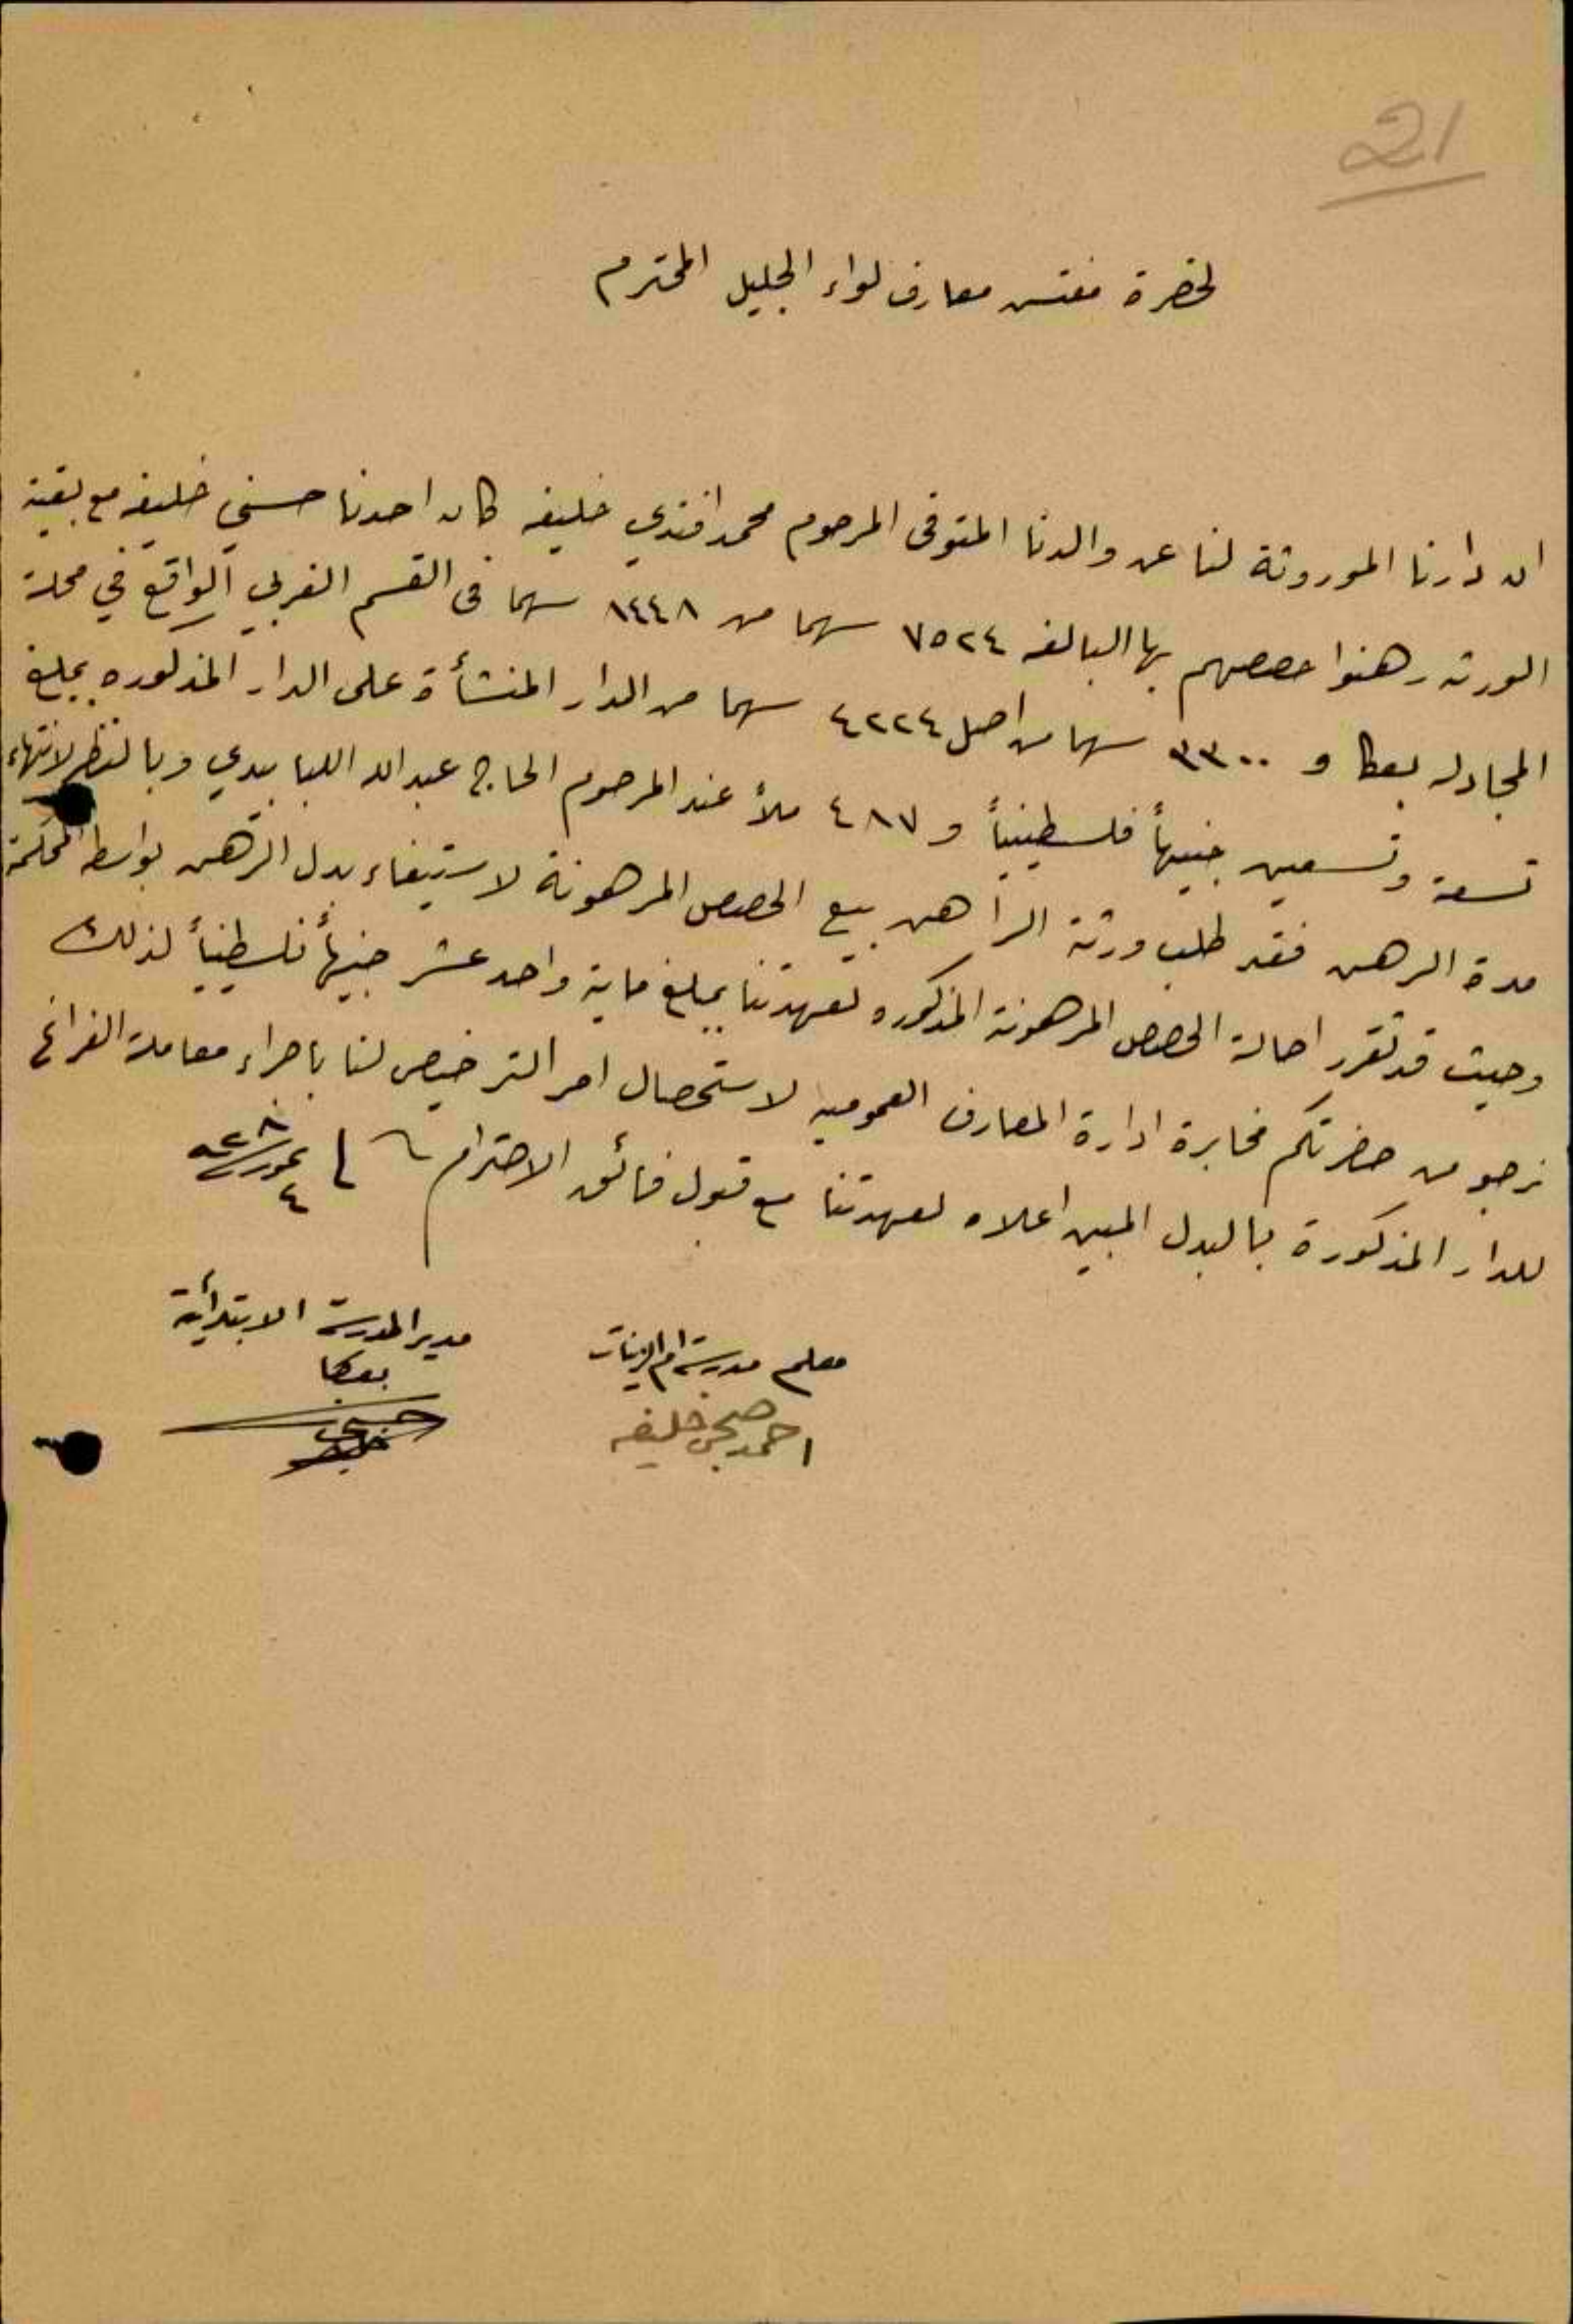 21
لحضرة مفتش معارف لواء الجليل المحترم
ان دارنا الموروثة لنا عن والدنا المتوفى المرحوم محمد افندي خليفه كان احدنا حسني خليفه مع بقية
الورثه رهنوا حصصهم بها البالغه ٧٥٢٤ سهما من ٨٤٤٨ سهما في القسم الغربي الواقع في محلة
المجادله بعكا و ٣٣٠٠ سهما من اصل ٤٢٢٤ سهما من الدار المنشأة على الدار المذكوره بمبلغ
تسعة وتسعين جنيهاً فلسطينياً و ٤٨٧ ملاً عند المرحوم الحاج عبد الله اللبابيدي وبالنظر لانتهاء
مدة الرهن فقد طلب ورثة الراهن بيع الحصص المرهونة لاستيفاء بدل الرهن بواسطة المحكمة
وحيث قد تقرر احالة الحصص المرهونة المذكوره لعهدتنا بمبلغ ماية واحد عشر جنيهاً فلسطينياً لذلك
نرجو من حضرتكم مخابرة ادارة المعارف العموميه لاستحصال امر الترخيص لنا باجراء معاملة الفراغ
للدار المذكورة بالبدل المبين اعلاه لعهدتنا مع قبول فائق الاحترام ٤ تموز ٩٢٨
معلم مدرسة ام الزينات
احمد صبحي خليفه
مدير المدرسة الابتدأية
بعكا
حسني خليفه